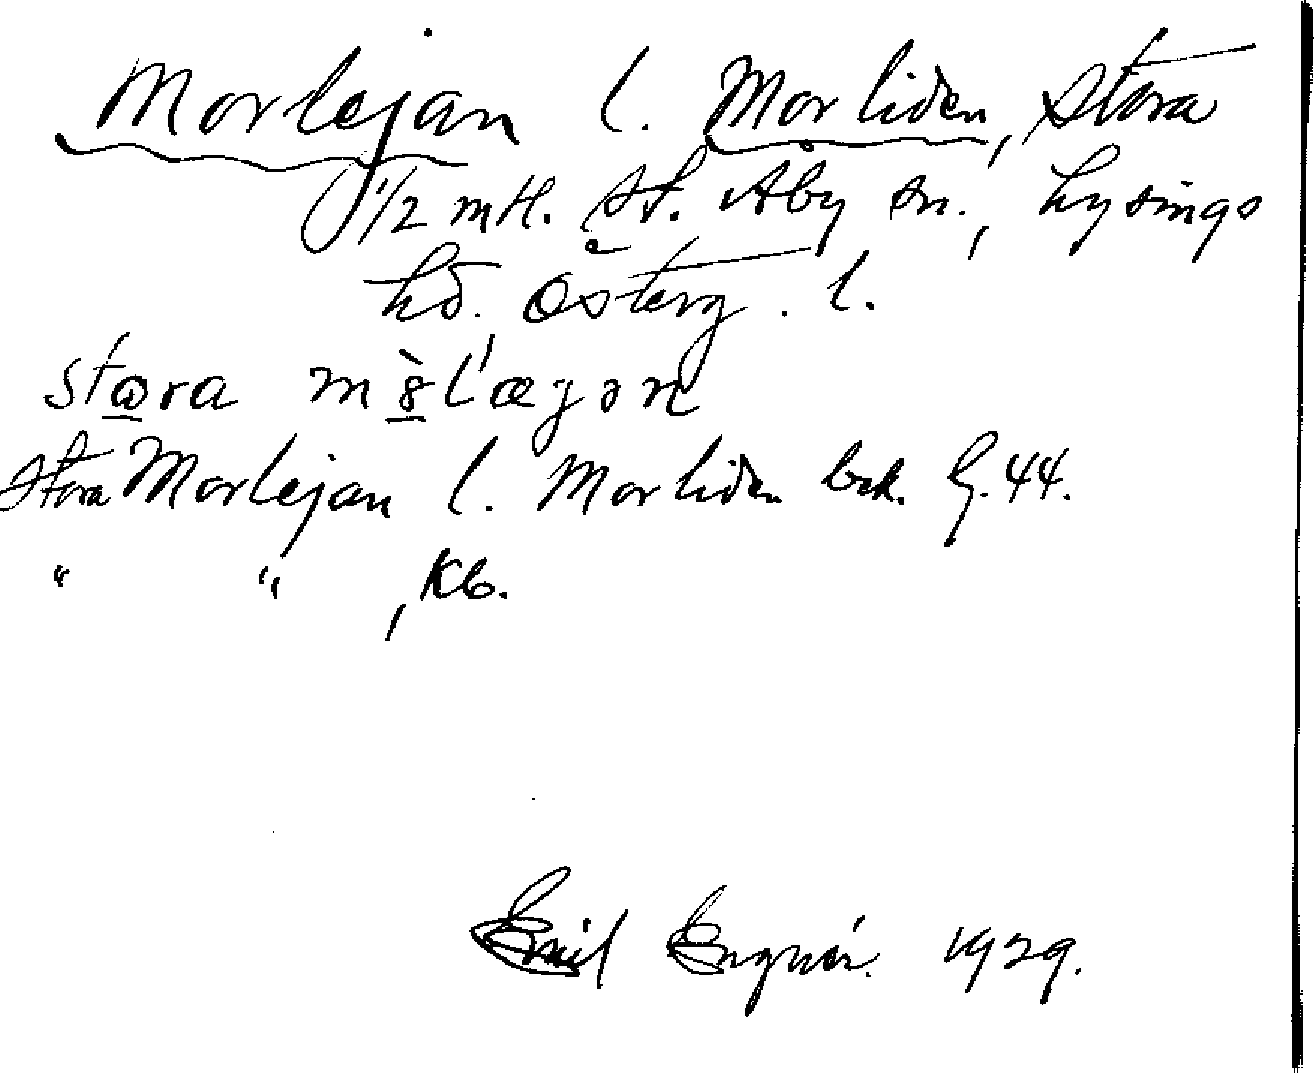 Morlejan l. Morliden, Stora
1/2 mtl. St. Åby sn., Lysings
hd. Österg. l.
stora
Stora Morlejan l. Morliden bek. G. 44.
" " , Kb.
Emil 1929.